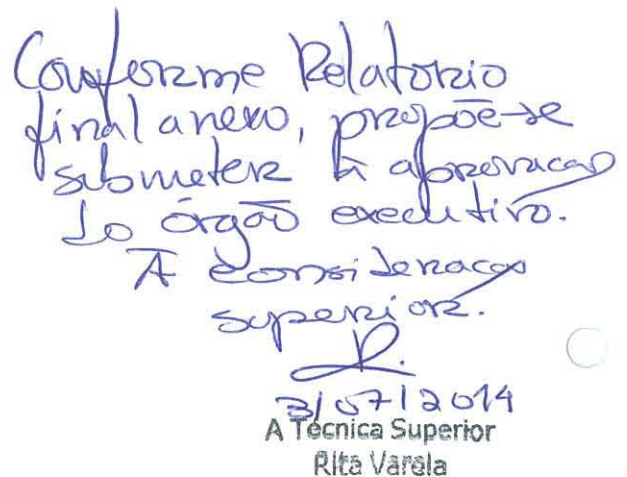 Conforme Relatorio
final anexo, propõe-se
submeter à aprovação
do órgão executivo.
À consideração
superior.
R.
3/07/2014
A Técnica Superior
Rita Varela